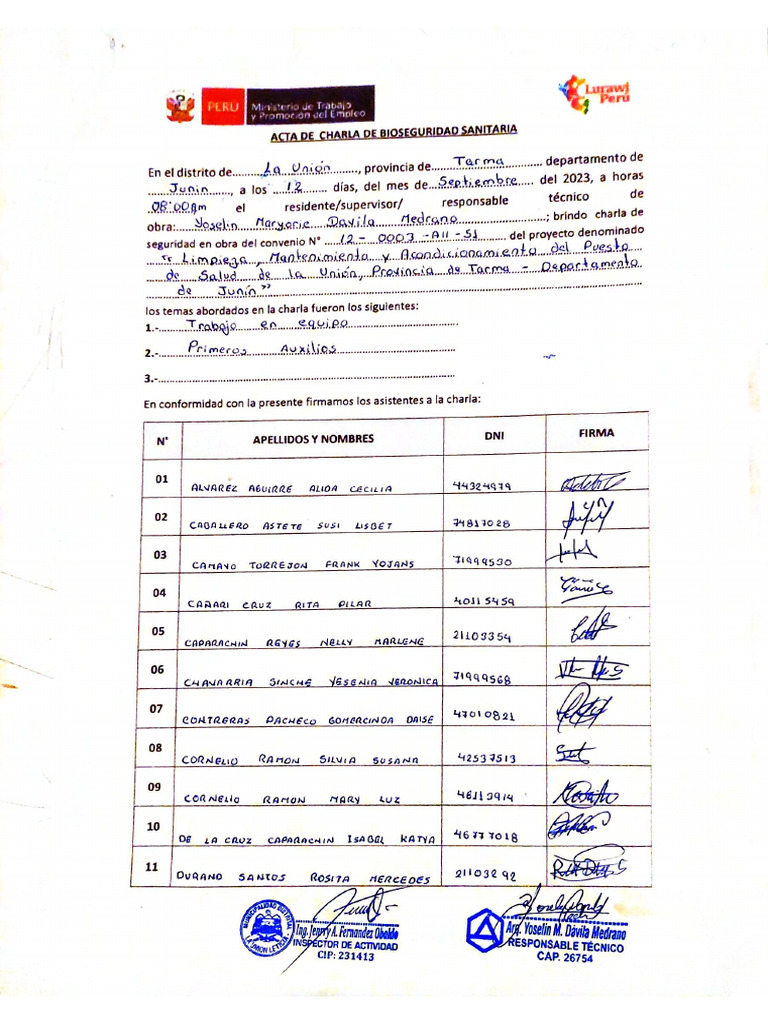 PERÚ
Ministerio de Trabajo
y Promoción del Empleo
Lurawi
Perú
ACTA DE CHARLA DE BIOSEGURIDAD SANITARIA
En el distrito de La Unión, provincia de Tarma departamento de
Junin, a los 12 días, del mes de Septiembre del 2023, a horas
08:00am el residente/supervisor/ responsable técnico de
obra: Yoselin Maryorie Davila Medrano; brindo charla de
seguridad en obra del convenio N° 12-0003-AII-51 del proyecto denominado
"Limpieza, Mantenimiento y Acondicionamiento del Puesto
de Salud de la Unión, Provincia de Tarma - Departamento
de Junín"
los temas abordados en la charla fueron los siguientes:
1.- Trabajo en equipo
2.- Primeros Auxilios
3.-
En conformidad con la presente firmamos los asistentes a la charla:
N° APELLIDOS Y NOMBRES DNI FIRMA
01 ALVAREZ AGUIRRE ALIDA CECILIA 44324979
02 CABALLERO ASTETE SUSI LISBET 74817028
03 CAMAYO TORREJON FRANK YOJANS 71999530
04 CAÑARI CRUZ RITA PILAR 40115459
05 CAPARACHIN REYES NELLY MARLENE 21103354
06 CHAVARRIA SINCHE YESENIA VERONICA 71999568
07 CONTRERAS PACHECO GOMERCINDA DAISE 47010821
08 CORNELIO RAMON SILVIA SUSANA 42537513
09 CORNELIO RAMON MARY LUZ 46113914
10 DE LA CRUZ CAPARACHIN ISABEL KATYA 46777018
11 DURAND SANTOS ROSITA MERCEDES 21103292
MUNICIPALIDAD DISTRITAL
LA UNION LETICIA
Ing. Jenny A. Fernandez Obaldo
INSPECTOR DE ACTIVIDAD
CIP: 231413
Arq. Yoselin M. Dávila Medrano
RESPONSABLE TÉCNICO
CAP. 26754